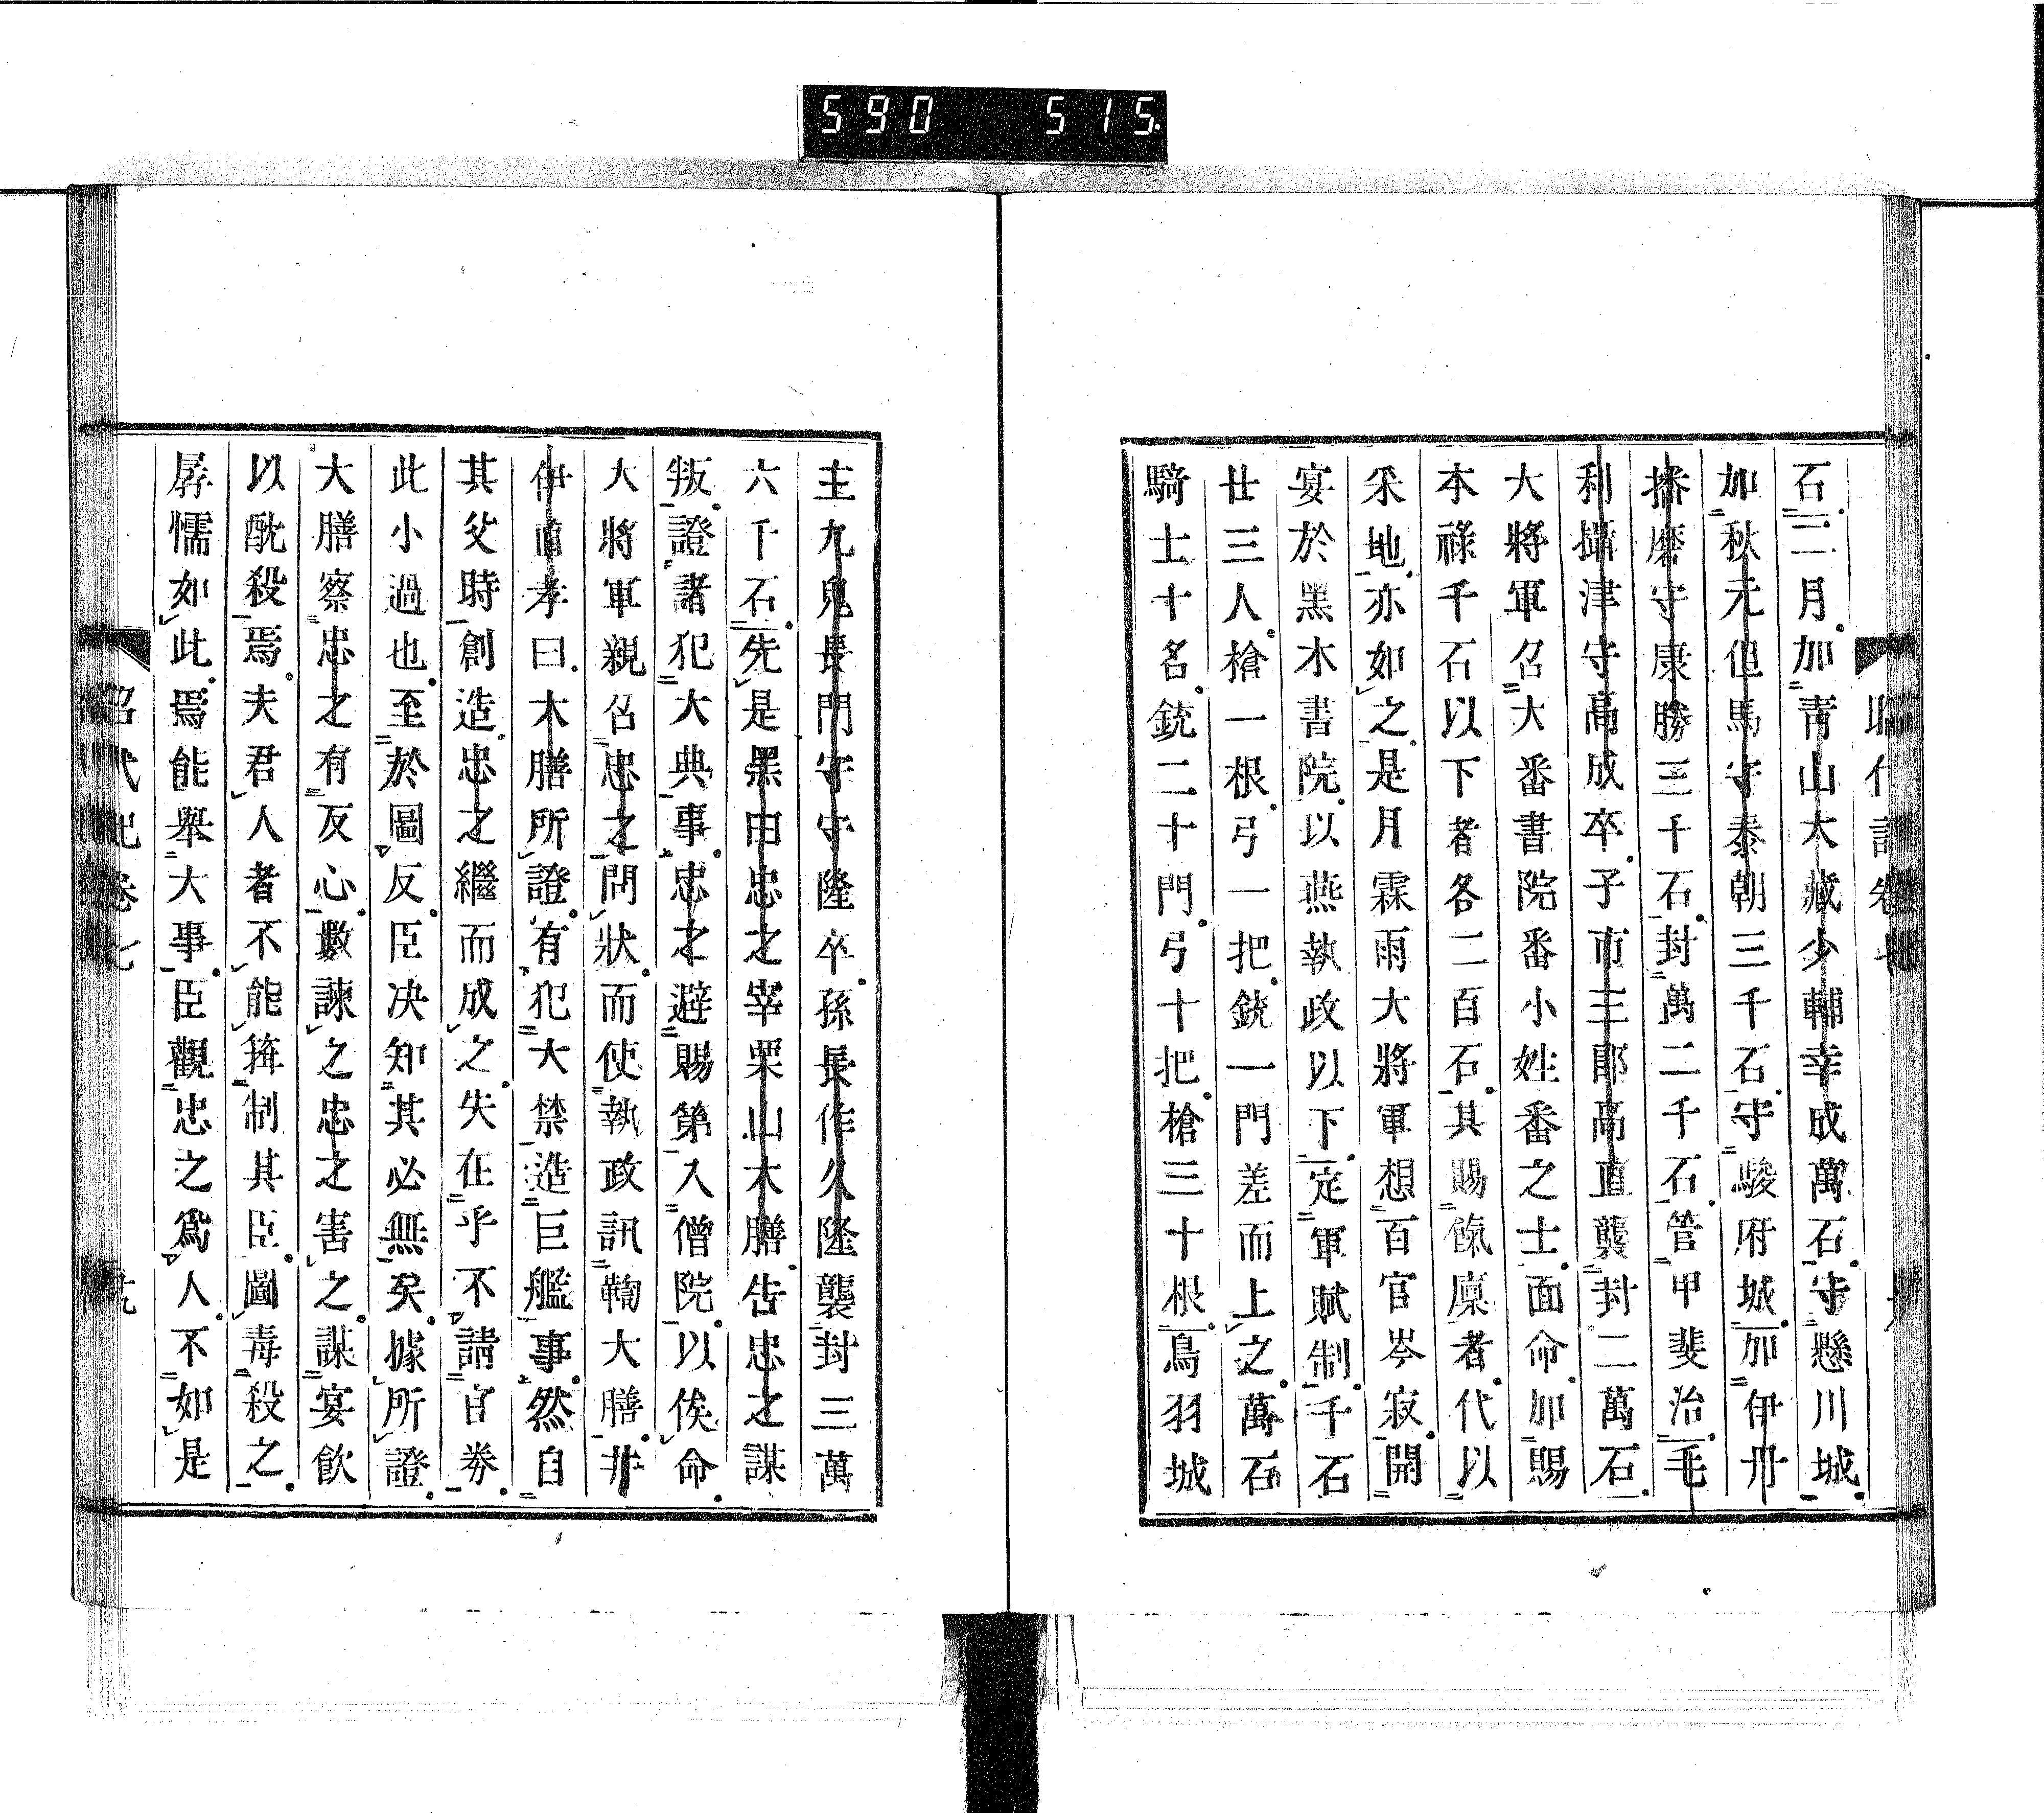 590 515
石二月加青山大藏少輔幸成萬石守懸川城
加秋元但馬守泰朝三千石守駿府城加伊丹
播磨守康勝三千石封萬二千石管甲斐治毛
利攝津守高成卒子市三郎高直襲封二萬石
大將軍召大番書院番小姓番之士面命加賜
本祿千石以下者各二百石其賜餼廩者代以
采地亦如之是月霖雨大將軍想百官岑寂開
宴於黑木書院以燕執政以下定軍賦制千石
廿三人槍一根弓一把銃一門差而上之萬石
騎士十名銃二十門弓十把槍三十根鳥羽城
主九鬼長門守守隆卒孫長作久隆襲封三萬
六千石先是黑田忠之宰栗山大膳告忠之謀
叛證諸犯大典事忠之避賜第入僧院以俟命
大將軍親召忠之問狀而使執政訊鞫大膳井
伊直孝曰大膳所證有犯大禁造巨艦事然自
其父時創造忠之繼而成之失在乎不請官券
此小過也至於圖反臣决知其必無矣據所證
大膳察忠之有反心數諫之忠之害之謀宴飲
以酖殺焉夫君人者不能箝制其臣圖毒殺之
孱懦如此焉能舉大事臣觀忠之爲人不如是
昭代記卷七